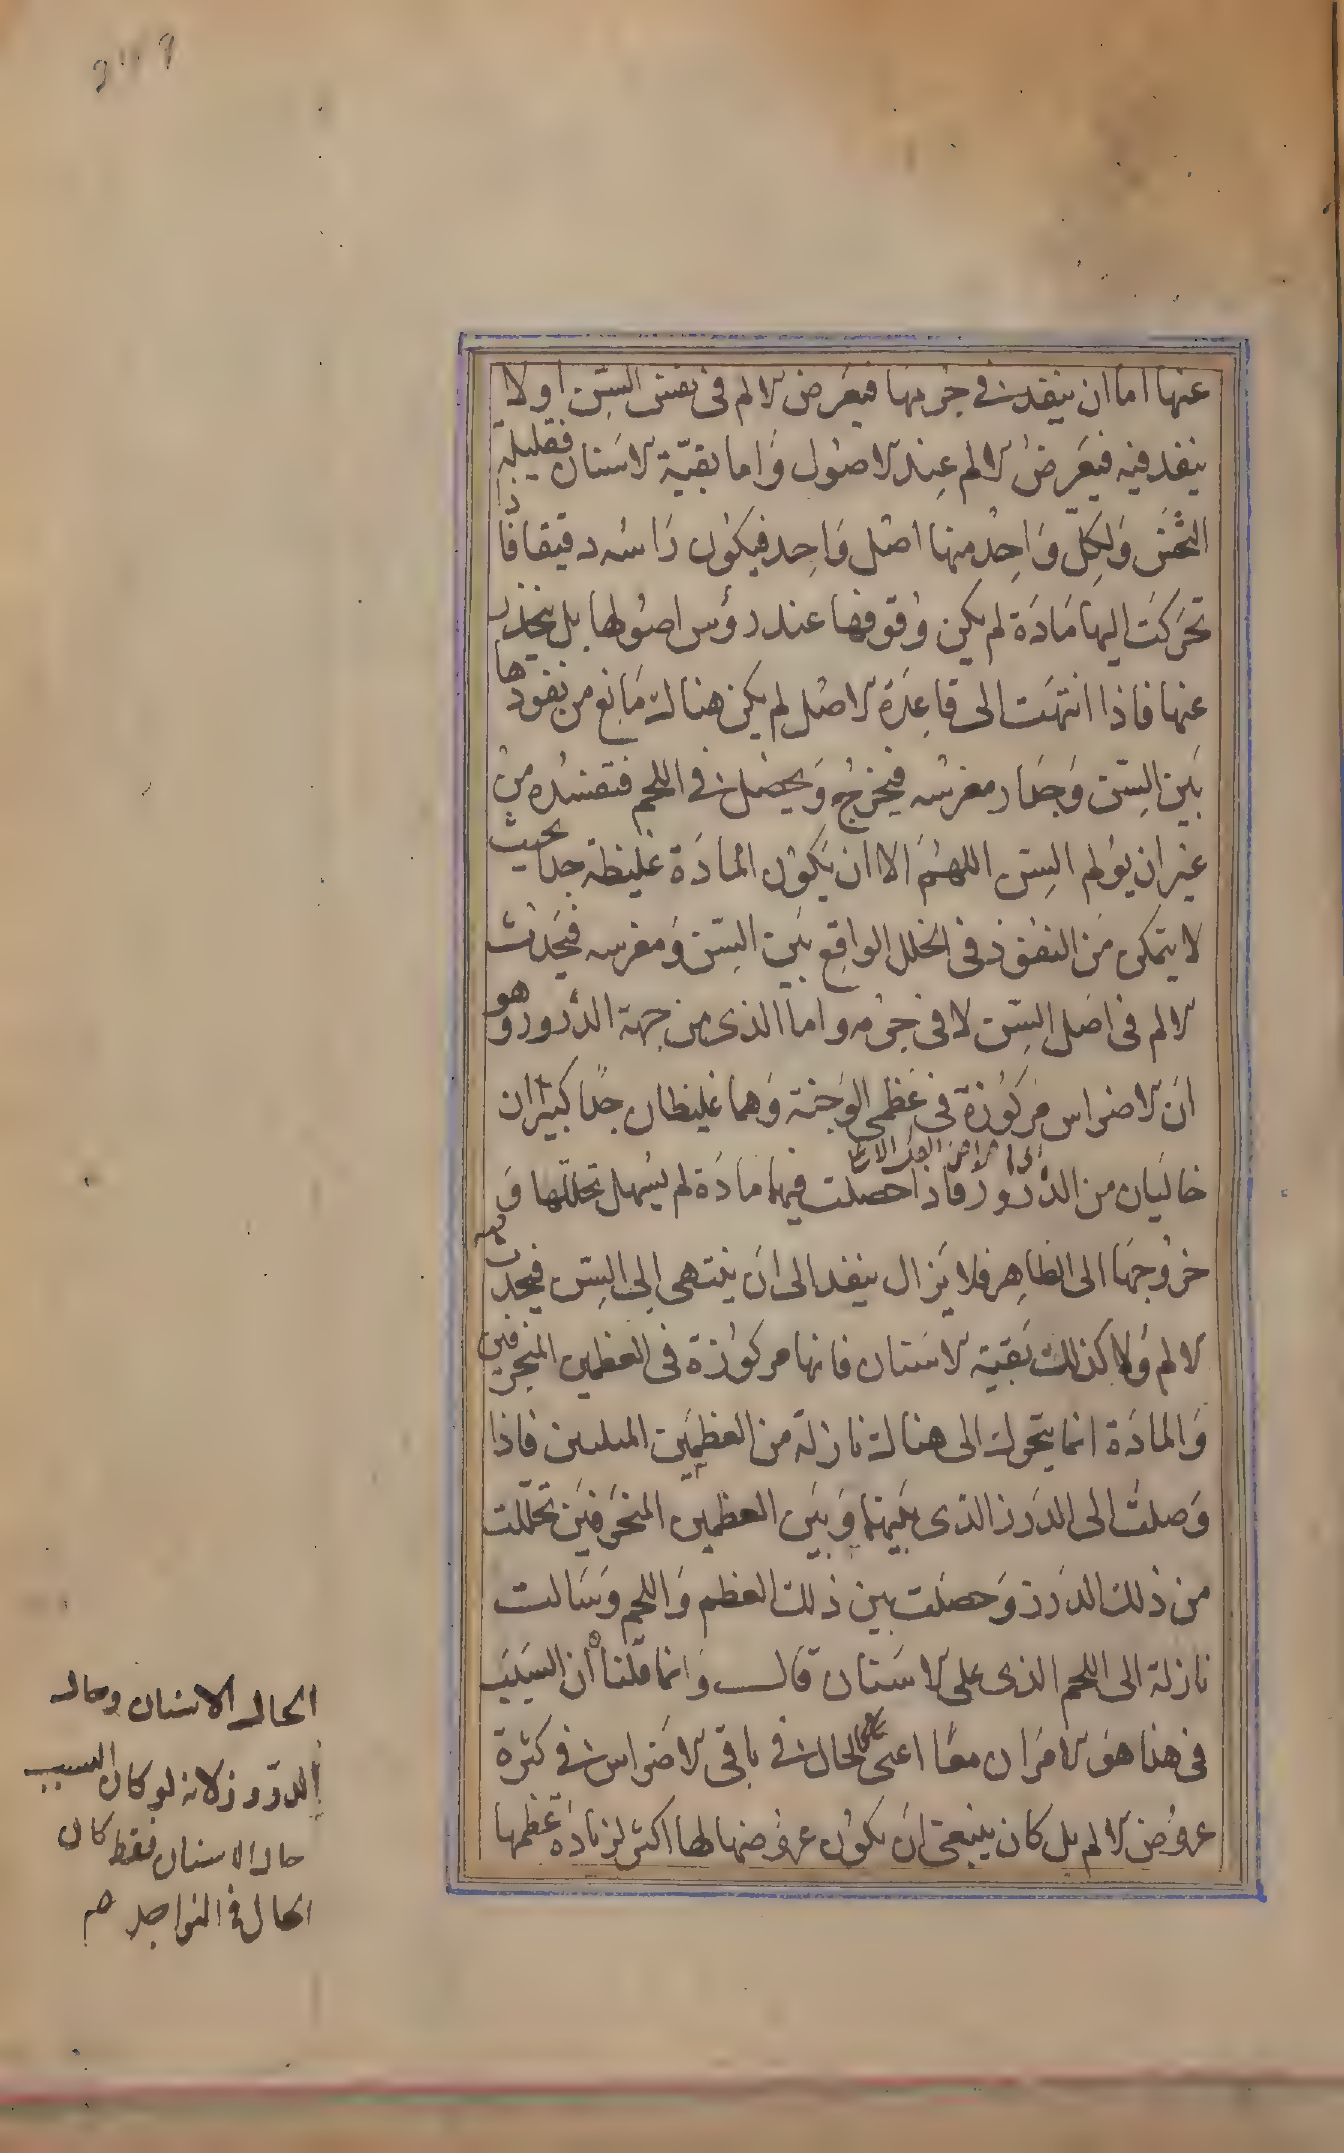 عنها اما ان ينفذ في جرمها فيعرض الالم في نفس السن او لا
ينفذ فيه فيعرض الالم عند الاصول واما بقية الاسنان فقليلة
التخن ولكل واحد منها اصل واحد فيكون راسه دقيقا فاذا
تحركت اليها مادة لم يكن وقوفها عند رؤس اصولها بل ينحدر
عنها فاذا انتهت الى قاعدة الاصل لم يكن هناك مانع من نفوذها
بين السن وجدار مغرسه فيخرج ويحصل في اللحم فتفسده من
غير ان يولم السن اللهم الا ان يكون المادة غليظة جدا بحيث
لا يتمكن من النفوذ في الخلل الواقع بين السن ومغرسه فيحدث
الالم في اصل السن لا في جرمه واما الذي من جهة الدروز وهو
ان الاضراس مركوزة في عظمي الوجنة وهما غليظان جدا كبيران
خاليان من الدروز فاذا حصلت فيهما مادة لم يسهل تحللها و
خروجها الى الظاهر فلا يزال ينفذ الى ان ينتهي الى السن فيحدث
الالم ولا كذلك بقية الاسنان فانها مركوزة في العظمين المنحرفين
والمادة انما يتحرك الى هناك نازلة من العظمين المثلثين فاذا
وصلت الى الدرز الذي بينهما وبين العظمين المنحرفين تحللت
من ذلك الدرز وحصلت بين ذلك العظم واللحم وسالت
نازلة الى اللحم الذي على الاسنان قال وانما قلنا ان السبب
في هذا هو الامران معا اعني الحال في باقي الاضراس في كثرة
عروض الالم بل كان ينبغي ان يكون عروضها لها اكثر لزيادة عظمها
الحال الاسنان وحال
الدروز لانه لو كان السبب
حال الاسنان فقط كان
الحال في النواجد